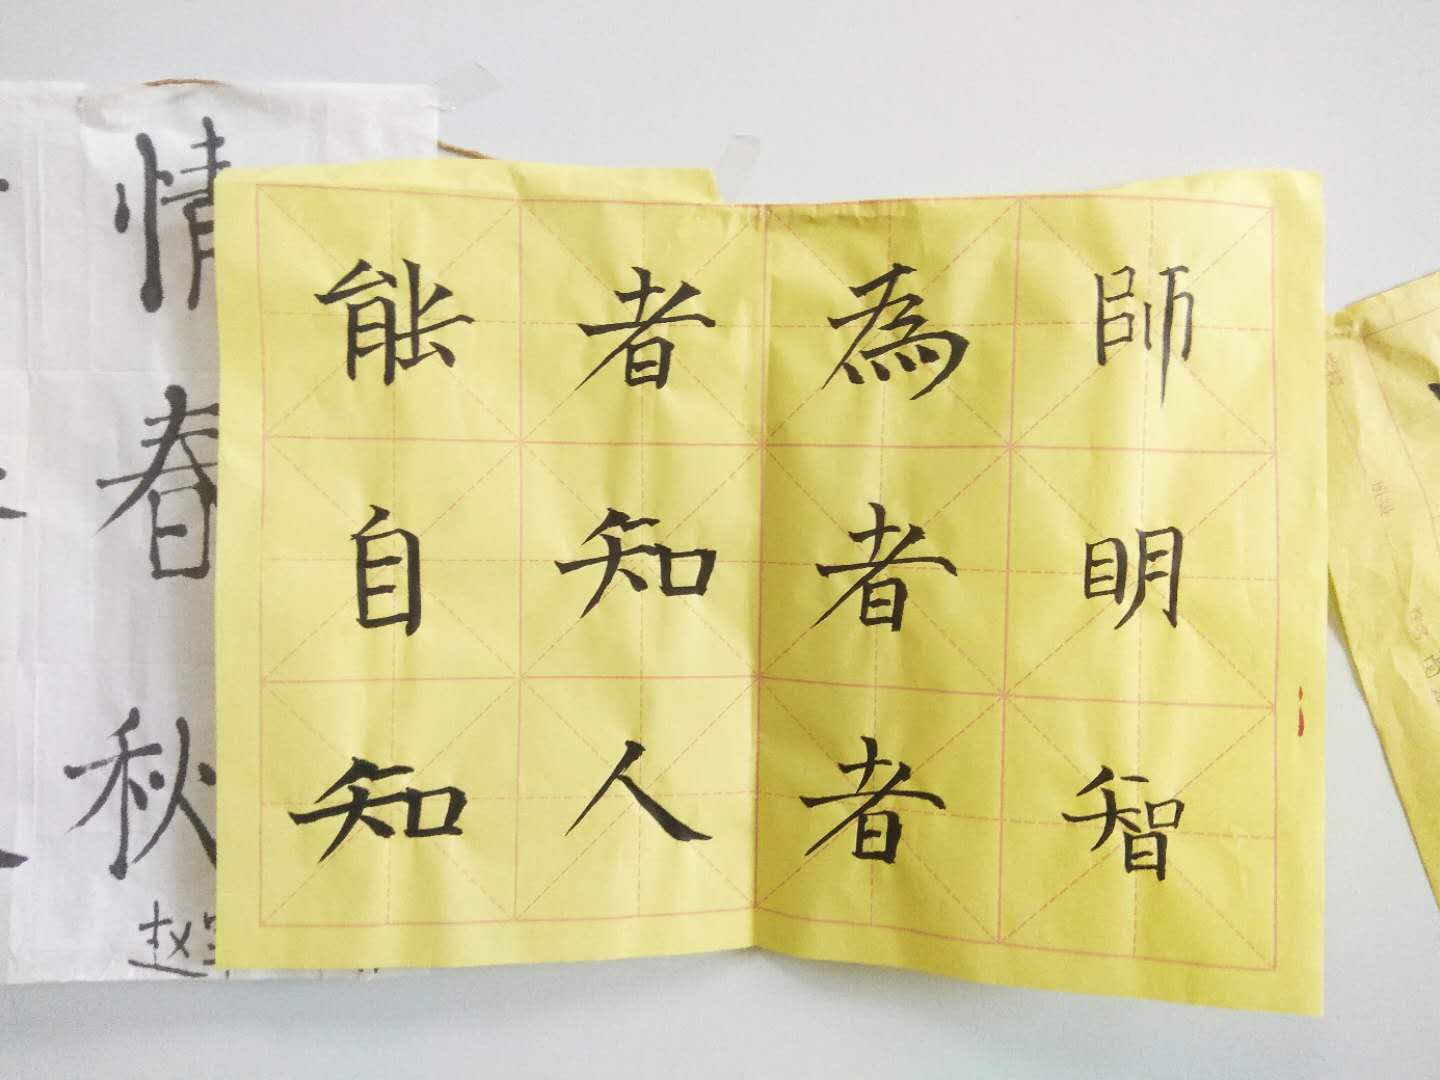 情
春
秋
赵
能者為師
自知者眀
知人者智